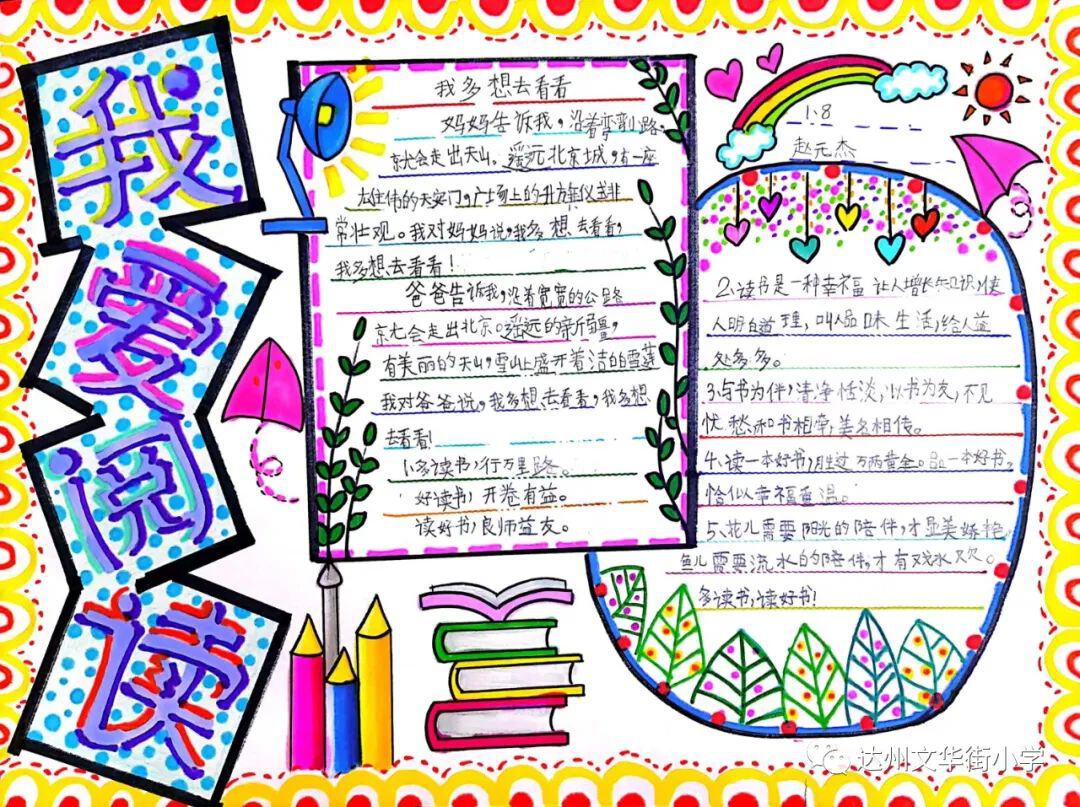 我爱阅读
我多想去看看
妈妈告诉我,沿着弯弯小路,
就会走出天山。遥远北京城,有一座
雄伟的天安门,广场上的升旗仪式非
常壮观。我对妈妈说,我多想去看看,
我多想去看看!
爸爸告诉我,沿着宽宽的公路
就会走出北京。遥远的新疆,
有美丽的天山,雪山上盛开着洁白雪莲
我对爸爸说,我多想去看看,我多想
去看看!
1.多读书,行万里路。
好读书,开卷有益。
读好书,良师益友。
1.8
赵元杰
2.读书是一种幸福 让人增长知识,使
人明白道理,叫人品味生活,给人益
处多多。
3.与书为伴,清净恬淡,以书为友,不见
忧愁,和书相牵,美名相传。
4、读一本好书,胜过万两黄金。品一本好书,
恰似幸福重温。
5、花儿需要阳光的陪伴,才显美娇艳
鱼儿需要流水的陪伴,才有戏水欢。
多读书,读好书!
达州文华街小学